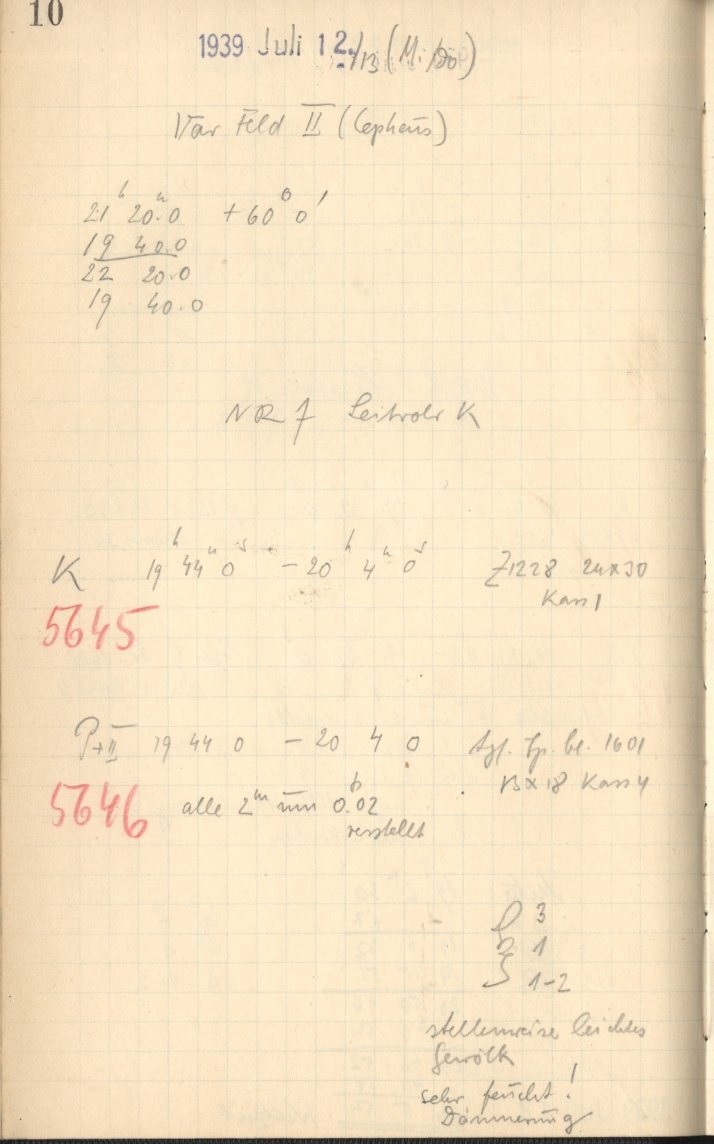 10
1939 Juli 12./13 (Mi/Do)
Var Feld II (Cepheus)
21ʰ 20ᵐ.0 +60° 0'
19 40.0
22 20.0
19 40.0
NR 7 Leitrohr K
K 19ʰ 44ᵐ 0ˢ – 20ʰ 4ᵐ 0ˢ Z1228 24x30
Kass 1
5645
P+II 19 44 0 – 20 4 0 Agf. 1601
13x18 Kass 4
5646 alle 2ᵐ um 0.02
verstellt
3
1
1-2
stellenweise leichtes
Gewölk
sehr feucht!
Dämmerung